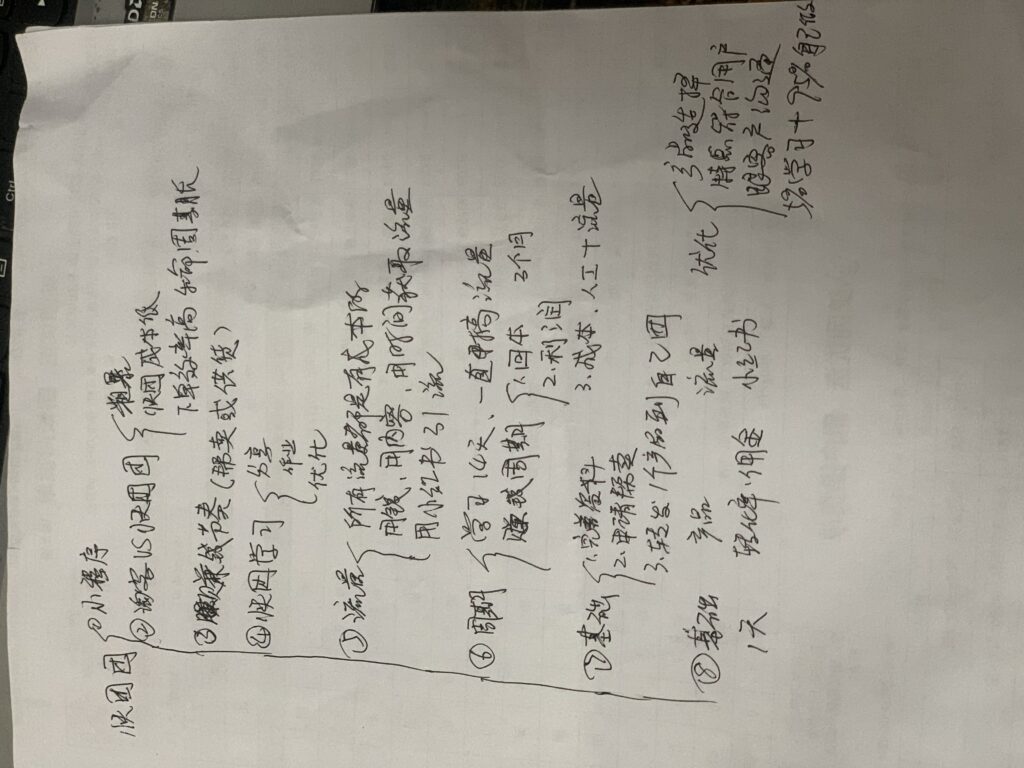 快团团
① 小程序
② 淘客 VS 快团团
粗暴
快团成本低
下单效率高 生命周期长
③ 赚钱节奏（帮卖或供货）
④ 快团学习
分享
作业
优化
⑤ 流量
所有流量都是有成本的
用钱、用内容、用时间获取流量
用小红书引流
⑥ 周期
学习14天、一直搞流量
赚钱周期
1.回本 3个月
2.利润
3.成本、人工+流量
⑦ 基础
1.完善资料
2.申请帮卖
3.转发1个产品到自己团
⑧ 基础 产品 流量 优化
1天 转化率、佣金 小红书
产品选择
特点符合用户
跟客户沟通
5%学习+95%自己做